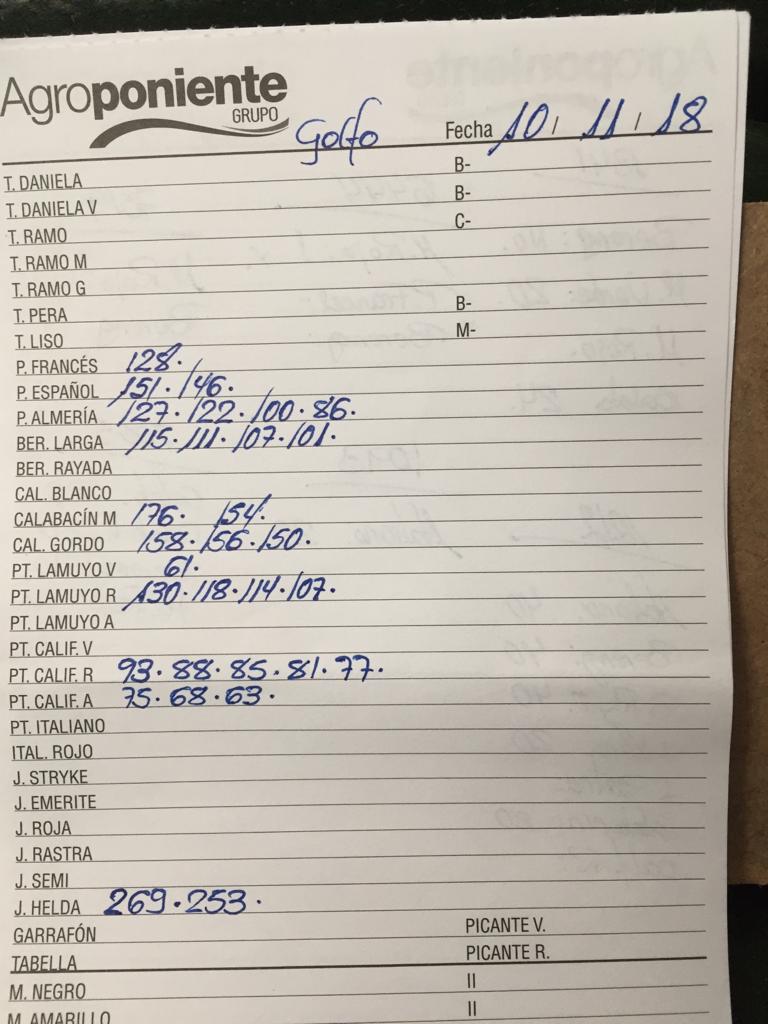 Agroponiente
GRUPO
Golfo Fecha 10 / 11 / 18
T. DANIELA B-
T. DANIELA V B-
T. RAMO C-
T. RAMO M
T. RAMO G
T. PERA B-
T. LISO M-
P. FRANCÉS 128.
P. ESPAÑOL 151. 146.
P. ALMERÍA 127. 122. 100. 86.
BER. LARGA 115. 111. 107. 101.
BER. RAYADA
CAL. BLANCO
CALABACÍN M 176. 154.
CAL. GORDO 158. 156. 150.
PT. LAMUYO V 61.
PT. LAMUYO R 130. 118. 114. 107.
PT. LAMUYO A
PT. CALIF. V
PT. CALIF. R 93. 88. 85. 81. 77.
PT. CALIF. A 75. 68. 63.
PT. ITALIANO
ITAL. ROJO
J. STRYKE
J. EMERITE
J. ROJA
J. RASTRA
J. SEMI
J. HELDA 269. 253.
GARRAFÓN PICANTE V.
TABELLA PICANTE R.
M. NEGRO II
M. AMARILLO II